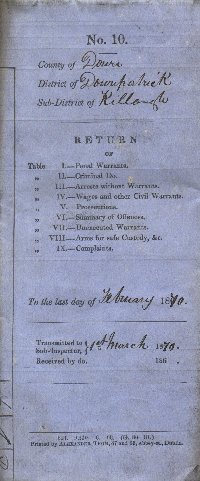 No. 10.
County of Down
District of Downpatrick
Sub-District of Killough
RETURN
OF
Table I.—Penal Warrants.
„ II.—Criminal Do.
„ III.—Arrests without Warrants.
„ IV.—Wages and other Civil Warrants.
„ V.—Prosecutions.
„ VI.—Summary of Offences.
„ VII.—Unexecuted Warrants.
„ VIII.—Arms for safe Custody, &c.
„ IX.—Complaints.
To the last day of February 1870.
Transmitted to
Sub-Inspector, } 1st March 1870.
Received by do. 186 .
Printed by ALEXANDER THOM, 87 and 88, Abbey-st., Dublin.